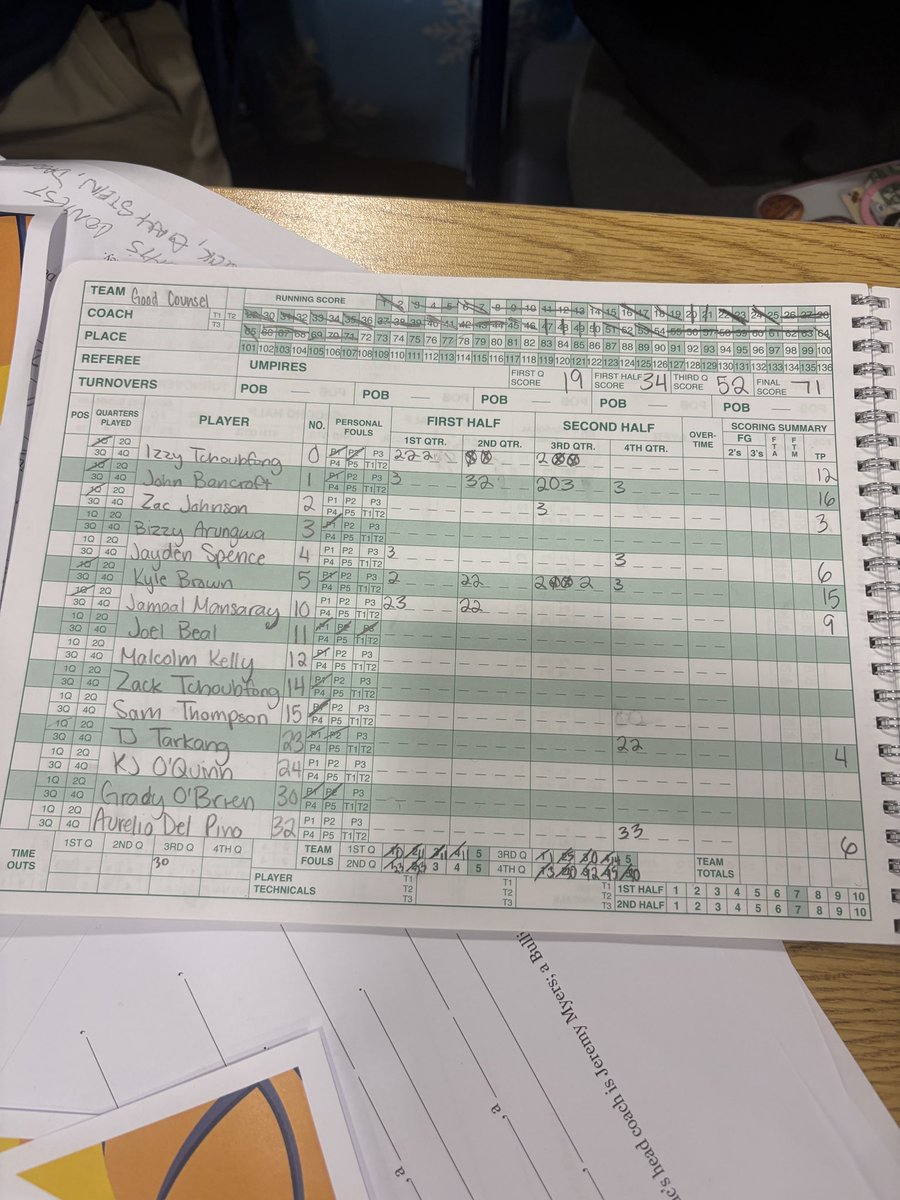 TEAM Good Counsel RUNNING SCORE 1 2 3 4 5 6 7 8 9 10 11 12 13 14 15 16 17 18 19 20 21 22 23 24 25 26 27 28
COACH T1 T2 29 30 31 32 33 34 35 36 37 38 39 40 41 42 43 44 45 46 47 48 49 50 51 52 53 54 55 56 57 58 59 60 61 62 63 64
T3 65 66 67 68 69 70 71 72 73 74 75 76 77 78 79 80 81 82 83 84 85 86 87 88 89 90 91 92 93 94 95 96 97 98 99 100
PLACE 101 102 103 104 105 106 107 108 109 110 111 112 113 114 115 116 117 118 119 120 121 122 123 124 125 126 127 128 129 130 131 132 133 134 135 136
REFEREE UMPIRES FIRST Q SCORE 19 FIRST HALF SCORE 34 THIRD Q SCORE 52 FINAL SCORE 71
TURNOVERS POB POB POB POB POB
POS QUARTERS PLAYED PLAYER NO. PERSONAL FOULS FIRST HALF SECOND HALF OVER-TIME SCORING SUMMARY
1ST QTR. 2ND QTR. 3RD QTR. 4TH QTR. FG 2's 3's FTA FTM TP
1Q 2Q 3Q 4Q Izzy Tchoubfong 0 P1 P2 P3 P4 P5 T1 T2 222 00 200 12
1Q 2Q 3Q 4Q John Bancroft 1 P1 P2 P3 P4 P5 T1 T2 3 32 203 3 16
1Q 2Q 3Q 4Q Zac Johnson 2 P1 P2 P3 P4 P5 T1 T2 3 3
1Q 2Q 3Q 4Q Bizzy Arungwa 3 P1 P2 P3 P4 P5 T1 T2
1Q 2Q 3Q 4Q Jayden Spence 4 P1 P2 P3 P4 P5 T1 T2 3 3 6
1Q 2Q 3Q 4Q Kyle Brown 5 P1 P2 P3 P4 P5 T1 T2 2 22 200 2 3 15
1Q 2Q 3Q 4Q Jamaal Mansaray 10 P1 P2 P3 P4 P5 T1 T2 23 22 9
1Q 2Q 3Q 4Q Joel Beal 11 P1 P2 P3 P4 P5 T1 T2
1Q 2Q 3Q 4Q Malcolm Kelly 12 P1 P2 P3 P4 P5 T1 T2
1Q 2Q 3Q 4Q Zack Tchoubfong 14 P1 P2 P3 P4 P5 T1 T2
1Q 2Q 3Q 4Q Sam Thompson 15 P1 P2 P3 P4 P5 T1 T2
1Q 2Q 3Q 4Q TJ Tarkang 23 P1 P2 P3 P4 P5 T1 T2 22 4
1Q 2Q 3Q 4Q KJ O'Quinn 24 P1 P2 P3 P4 P5 T1 T2
1Q 2Q 3Q 4Q Grady O'Brien 30 P1 P2 P3 P4 P5 T1 T2
1Q 2Q 3Q 4Q Aurelio Del Pino 32 P1 P2 P3 P4 P5 T1 T2 33 6
TIME OUTS 1ST Q 2ND Q 3RD Q 30 4TH Q TEAM FOULS 1ST Q 5 3RD Q 5 TEAM TOTALS
2ND Q 3 4 5 4TH Q
PLAYER TECHNICALS T1 T2 T3 T1 T2 T3 T1 T2 T3 1ST HALF 1 2 3 4 5 6 7 8 9 10
2ND HALF 1 2 3 4 5 6 7 8 9 10
's head coach is Jeremy Myers; a Bulli
, a
, a